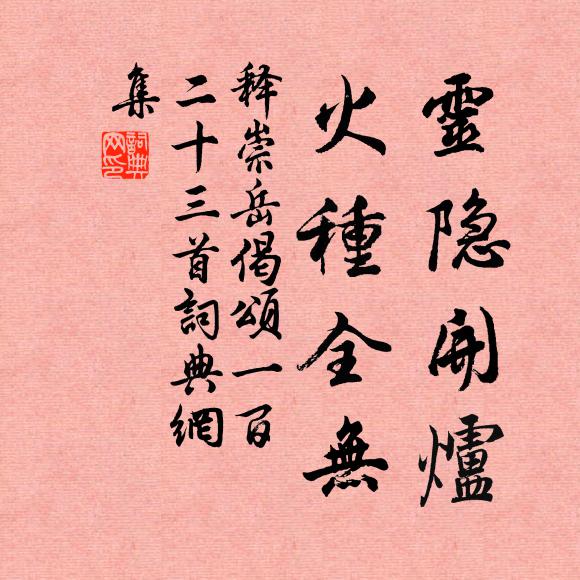 靈隐開爐
火種全無
释崇岳偈頌一百
二十三首詞典網
集
詞典网印